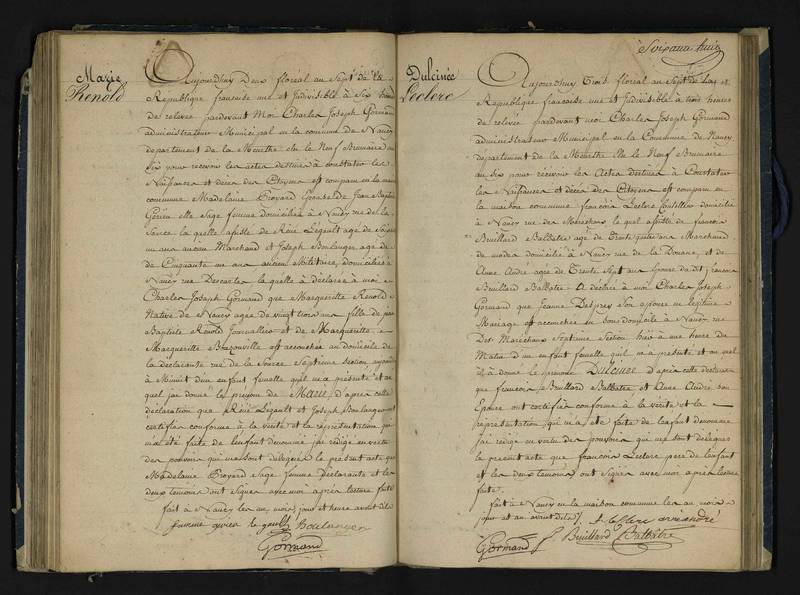 Marie
Renold
Aujourdhuy Deux floreal an Sept de la
Republique francaise une et Indivisible à Six heures
de relevée pardevant Moi Charles Joseph Gormand
administrateur Municipal en la commune de Nancy
departement de la Meurthe élu le Neuf Brumaire an
Six pour recevoir les actes destinés à constater les
Naissances et décès des Citoyens est comparu en la maison
commune Madelaine Broyard Epouse de Jean Baptiste
elle Sage femme domiciliée à Nancy rue de la
Source la quelle assistée de René Légault agé de
un ans ancien Marchand et Joseph Boulanger agé de
de Cinquante un ans ancien Militaire, domiciliés à
Nancy rue Descartes la quelle à déclarée à moi
Charles Joseph Gormand que Margueritte Renold
Native de Nancy agée de vingt trois ans fille de
Baptiste Renold Journallier et de Margueritte
Margueritte Bouzonville est accouchée au domicile de
la déclarante rue de la Source Septieme section
à Minuit d'un enfant femelle qu'il m'a présenté et au
quel jai donné le prenom de Marie d'après cette
déclaration que René Légault et Joseph Boulanger ont
certifier conforme à la vérité et la représentation qui
m'a été faite de l'enfant denommé jai rédigé en vertu
des pouvoirs qui me sont delegués le présent acte que
Madelaine Broyard Sage femme Déclarante et les
deux temoins ont Signer avec moi après lecture faite
fait à Nancy les an, mois, jour et heure avant dits
le gault Boulanger
Gormand
Soixante huit
Dulcinée
Leclerc
Aujourdhuy Trois floreal an Sept de la
Republique francaise une et Indivisible à trois heures
de relevée pardevant moi Charles Joseph Gormand
administrateur Municipal en la Commune de Nancy
departement de la Meurthe élu le Neuf Brumaire
an six pour recevoir les Actes destinés à Constater
les Naissances et décès des Citoyens est comparu en
la maison commune françois Leclerc domicilié
à Nancy rue des Maréchaux le quel assisté de francois
Bruillard Balbatre agé de Trente ans Marchand
de modes domicilié à Nancy rue de la Douane, et de
Anne André agée de Trente Sept ans Epouse du dit francois
Bruillard Balbatre A déclaré à moi Charles Joseph
Gormand que Jeanne Desprey son epouse en legitime
Mariage est accouchée en son domicile à Nancy rue
Des Maréchaux Septieme Section hier à une heure de
Matin d'un enfant femelle quil m'a présenté et au quel
il à donné le prenoms Dulcinée D'après cette declaration
que francois Bruillard Balbatre et Anne André son
Epouse ont certifiés conforme à la vérité et la
représentation qui m'a été faite de l'enfant denommée
jai rédigé en vertu des pouvoirs qui me sont delegués
le présent acte que francois Leclerc pere de l'enfant
et les deux temoins ont Signés avec moi après lecture
faite.
fait à Nancy en la maison commune les an mois
jour et an avant dits. Leclerc anne andré
Gormand f. Bruillard Balbatre